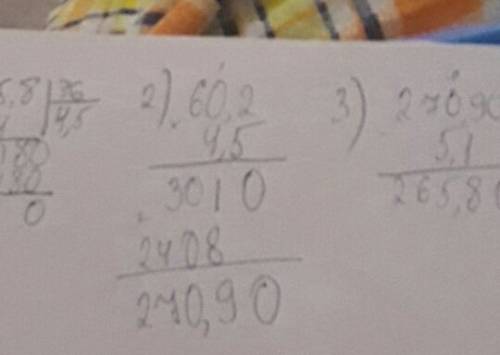 5,8 | 36
4,5
180
180
0
2) 60,2
4,5
3010
2408
270,90
3) 270,90
5,1
265,8